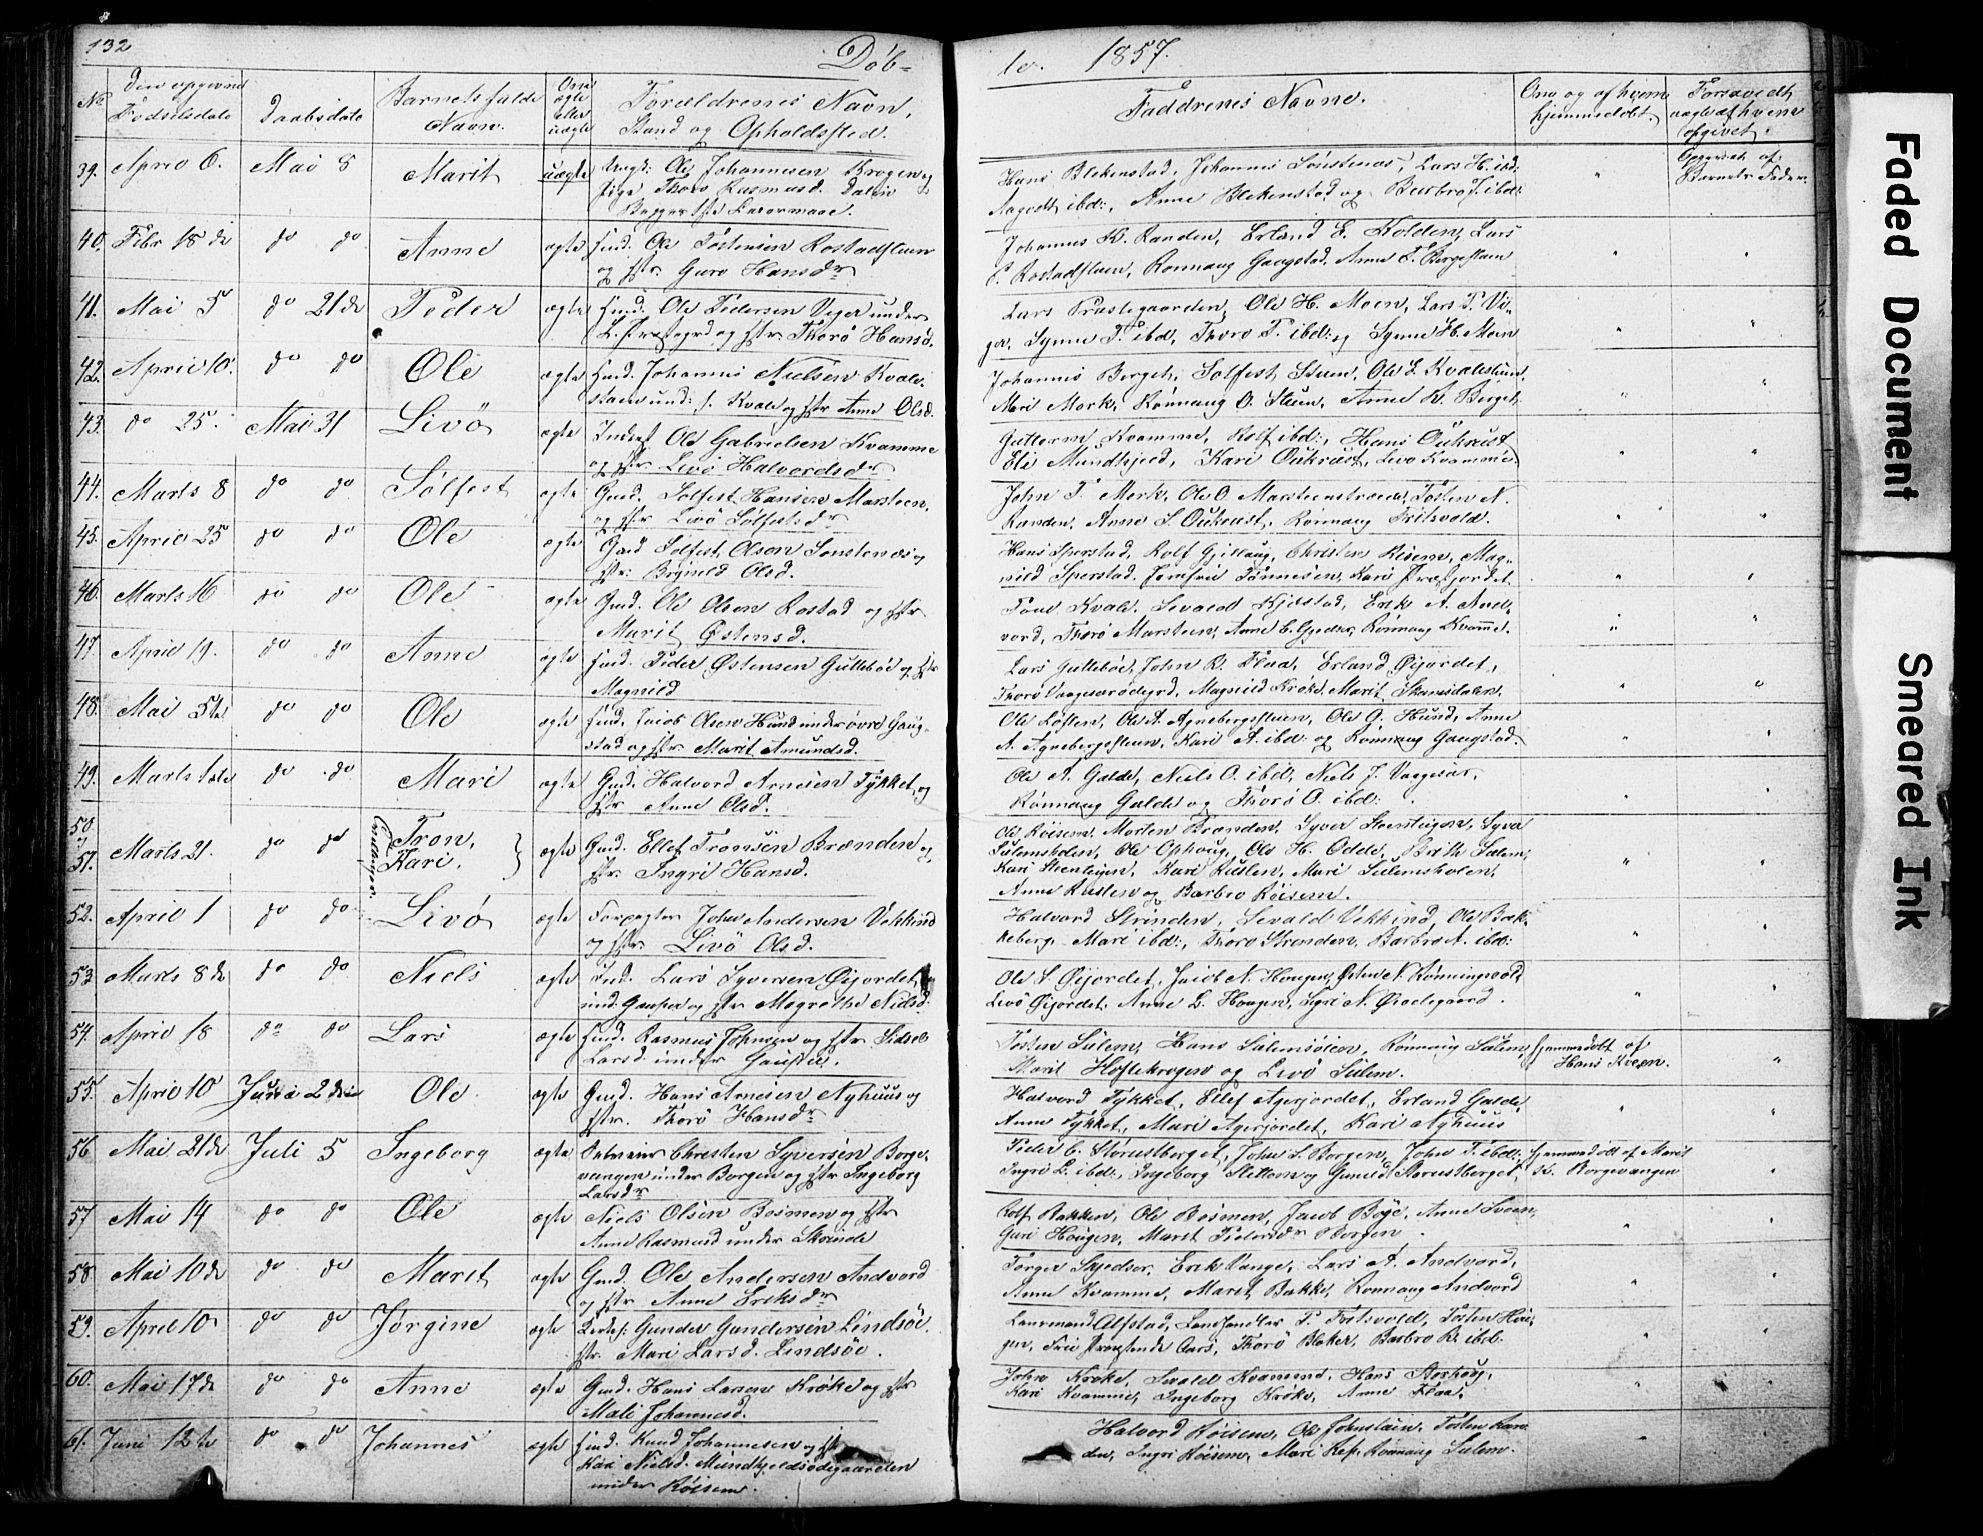 132
Døb-
te.
1857.
No
Den opgivne Fødselsdato
Daabsdato
Barnets fulde Navn.
Om ægte Eller uægte
Forældrenes Navn, Stand og Opholdssted.
Faddrenes Navne.
Om og af hvem hjemmedøbt.
Forsaavidt uægte af hvem opgivet.
39. April 6. Mai 8 Marit uægte Ungk: Ole Johannesen Krogen og
Pige Thoro Rasmusd.
Hans Blekenstad, Johannes Sønstenæs, Lars H. ibd:
Aagodt ibd:, Anne Blekenstad og Barbro T. ibd:
"
Opgivet af Barnets Fader.
40. Febr 18de do do Anne ægte Huusm. Ole Tostensen Rostadstuen
og Hstr. Guro Hansdr
Johannes K. Randen, Erland E. Kolden, Lars
E. Rostadstuen, Rønnaug Gaagstad, Anne T. Bergestuen
41. Mai 5 do 21de Peder ægte Huusm. Ole Pedersen Viger under
L. Præstegrd og Hstr. Thorø Hansd.
Lars Præstegaarden, Ole H. Moen, Lars P. Vi-
ger, Synne P. ibd, Thoro P. ibd: og Synne H. Moen
42. April 10. do do Ole ægte Huusm. Johannes Nielsen Kvale-
stuen und: f. Kvale og Hstr Anne Olsd.
Johannes Berget, Solfest Stuen, Ole S. Kvalestuen,
Mari Mork, Rønnaug O. Stuen, Anne K. Berget,
43. do 25. Mai 31 Livø ægte Inderst Ole Gabrielsen Kvamme
og Hstr. Livø Halvordsdr
Guttorm Kvamme, Rolf ibd:, Hans Oukrust
Eli Mundhjeld, Kari Oukrust, Livo Kvamme.
44. Marts 8 do do Solfest ægte Gmd. Solfest Hansen Marsteen,
og Hstr Livø Solfestsdr
John T. Mork, Ole O. Marsteenstræde, Tosten N.
Randen, Anne S. Oukrust, Rønnaug Fritsvold.
45. April 25 do do Ole ægte Gmd Solfest Olsen Sønstenæs og
Hstr: Brynild Olsd.
Hans Sperstad, Rolf Gjillaug, Christen Risem, Mag-
nild Sperstad, Jomfrue Tønnesen, Kari Præstjordet
46. Marts 16 do do Ole ægte Gmd. Ole Olsen Rostad og Hstr
Marit Østensd.
Tore Kvale, Sevald Kjæstad, Erik A. And-
vord, Thorø Marsteen, Anne E. Gjeder, Rønnaug Kvamme.
47. April 19. do do Anne ægte Huusm. Peder Østensen Guttebøe og Hstr
Magnild
Lars Guttebøe, John R. Flaa, Erland Øijordet,
Magnild Krøke, Marit Skansdalen.
48. Mai 5te do do Ole ægte Huusm. Jacob Olsen Hund under øvre Gaug-
stad og Hstr. Marit Amundsd.
Ole Løften, Ole A. Agnebergstuen, Ole O. Hund, Anne
A. Agnebergstuen, Kari A. ibd: og Rønnaug Gaugstad.
49. Marts 1ste do do Mari ægte Gmd. Halvord Arnesen Tykket og
Hstr Anne Olsd.
Ole A. Galde, Niels O. ibd, Niels J. Vaggesar,
Rønnaug Galde og Thorø O. ibd:
50 og 51. Marts 21. do do Tvillinger Tron, Kari. ægte Gmd. Ellef Tronsen Brænden og
Hstr. Ingri Hansd.
Ole Røisem, Morten Brænden, Syver Steenteigen, Syver
Sulemsholen, Ole Ophoug, Ole H. Odde, Brith Sulem,
Kari Steenteigen, Kari Kuslen, Mari Sulemsholen,
Anne Kuslen og Barbro Røisem.
52. April 1 do do Livø ægte Forpagter John Andersen Vekkind
og Hstr Livø Olsd.
Halvord Strinden, Sevald Vekkind, Ole Bak-
keberg, Mari ibd:, Thoro Strenden, Barbro A. ibd:
53 Marts 8de do do Niels ægte Ind. Lars Syversen Øijordet
und. Gaupar og Hstr Magrethe Nielsd:
Ole S Øijordet, Jacob N. Hougen, Østen N. Rønningsvold
Livø Øijordet, Anne L. Hougen, Sygri N. Ødegaard.
54. April 18 do do Lars ægte Huusm. Rasmus Johnsen og Hstr Sidsel
Larsd. under Gaustad.
Tosten Sulem, Hans Sulemsøien, Rønnaug Sulem,
Marit Hoftekrogen og Livø Sulem.
Hjemmedøbt af
Hans Kveen.
55. April 10 Juni 2den Ole ægte Gmd. Hans Arnesen Nyhuus og
Hstr. Thorø Hansdr
Halvord Tykket, Ellef Agerjordet, Erland Galde,
Anne Tykket, Mari Agerjordet, Kari Nyhuus
56 Mai 21de Juli 5 Ingeborg ægte Christen Syversen Borge-
vangen under Borgen og Hstr Ingeborg
Larsdr
Peder C. Storustberget, John S. Borgen, John T. ibd:,
Ingri L. ibd:, Ingeborg Slettem og Gunild Storustberget,
Hjemmedøbt af Marit
Borgevangen
57 Mai 14 do do Ole ægte Niels Olsen Bosmen og Hstr
Anne Rasmusd under Skrinde
Rolf Bakken, Ole Bosmen, Jacob Boge, Anne Sveen,
Guri Hougen, Marit Pedersdr Borgen.
58 Mai 10de do do Marit ægte Gmd. Ole Andersen Andvord
og Hstr Anne Eriksdr
Torger Skjedsor, Erik Vange, Lars A. Andvord,
Anne Kvamme, Marit Bakke, Rønnaug Andvord
59. April 10 do do Jørgine ægte Gunder Gundersen Lindsøe.
Hstr. Mari Larsd. Lindsøe.
Lensmand Alfstad, Landhandler P. Fritsvold, Tosten Hou-
gen, Frue Provstinde Aars, Thorø Bleker, Barbro R. ibd.
60. Mai 17de do do Anne ægte Gmd. Hans Larsen Krøke og Hstr
Mali Johannesd.
John Krøke, Sevald Kvamme, Hans Storhoug,
Kari Kvamme, Ingeborg Krøke, Anne Flaa.
61. Juni 12te do do Johannes ægte Huusm. Knud Johannesen og Hstr
Kari Nielsd. Mundhjeldsødegaarden
under Røisem.
Halvord Røisem, Ole Johnstuen, Tosten Ran-
den, Ingri Røisem, Mari Rep, Rønnaug Sulem.
Faded Document
Smeared Ink